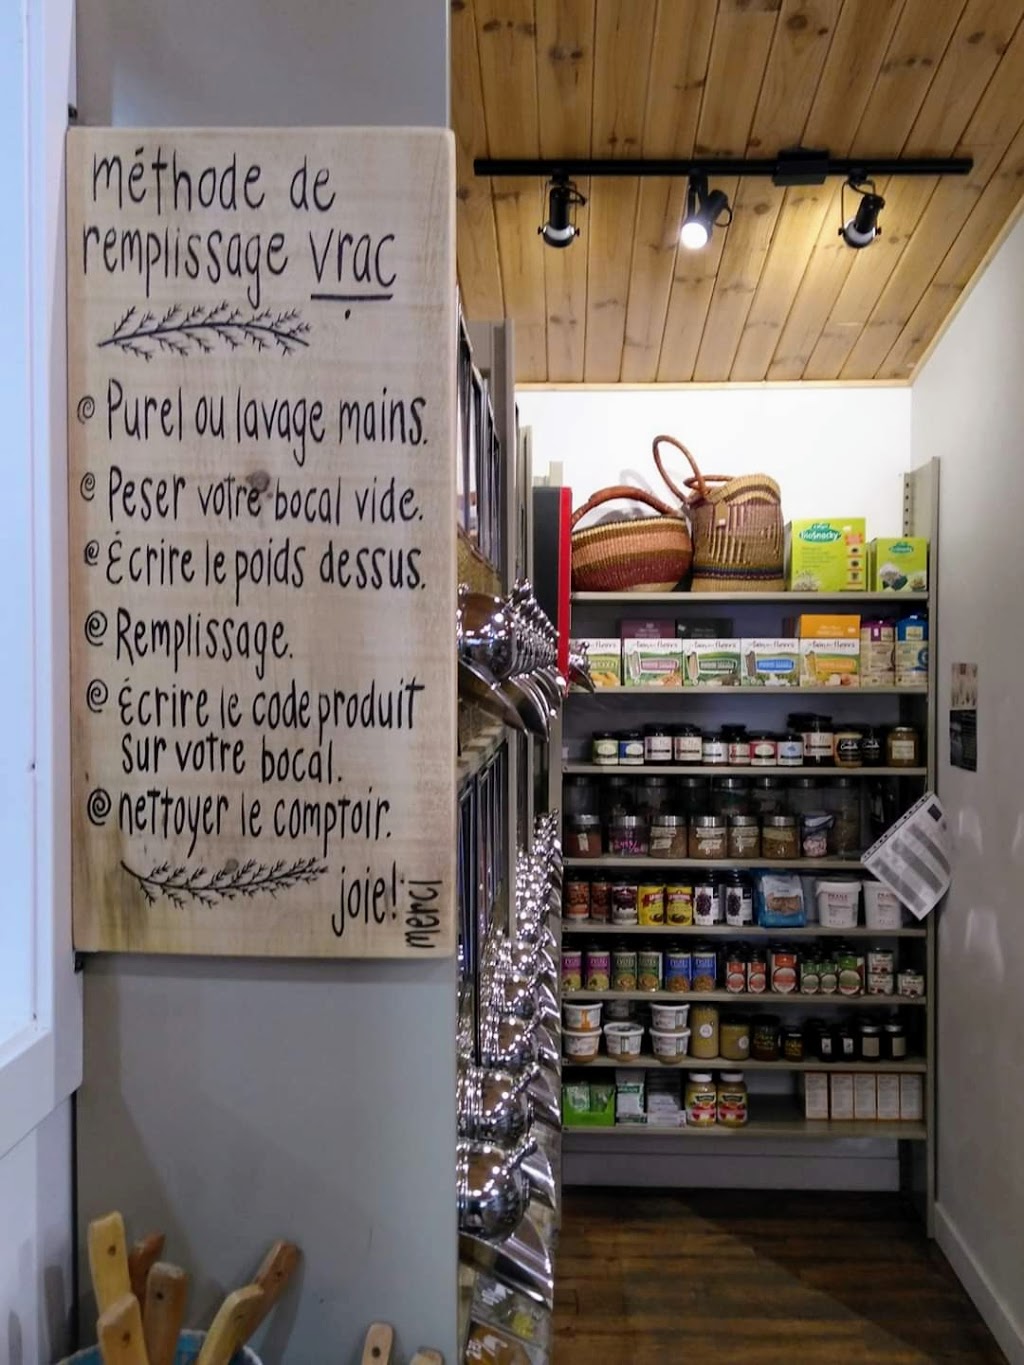 méthode de
remplissage vrac
Purel ou lavage mains.
Peser votre bocal vide.
Écrire le poids dessus.
Remplissage.
Écrire le code produit
sur votre bocal.
nettoyer le comptoir.
joie!
merci
bioSnacky